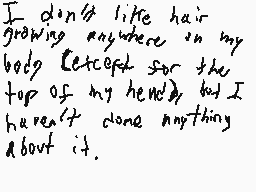 I don't like hair
growing anywhere on my
body (except for the
top of my head), but I
haven't done anything
about it.